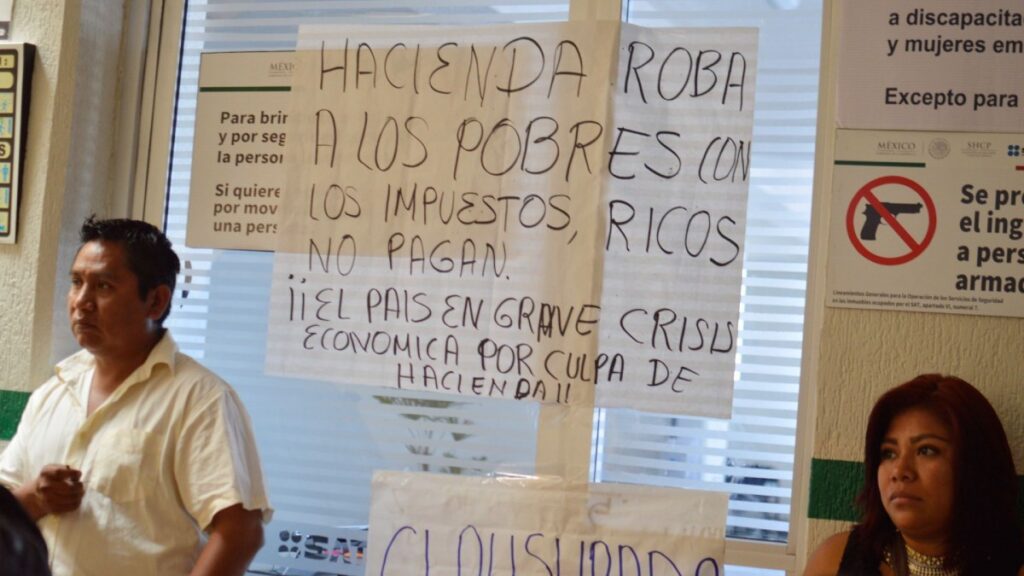 HACIENDA ROBA
A LOS POBRES CON
LOS IMPUESTOS, RICOS
NO PAGAN.
¡¡EL PAIS EN GRAVE CRISIS
ECONOMICA POR CULPA DE
HACIENDA!!
CLAUSURADA
SAT
MÉXICO
Para
y por
la
Si
por
una
a
y mujeres
Excepto para
MÉXICO
SHCP
Se
el
a
Lineamientos Generales para la Operación de los Servicios de Seguridad
en los inmuebles ocupados por el SAT, apartado VI, numeral 7.